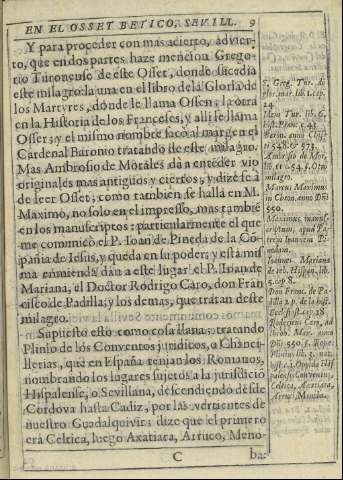 EN EL OSSET BETICO, SEVILL. 9
Y para proceder con mas acierto, advier-
to, que en dos partes haze mencion Grego-
rio Turonense de este Osset, donde sucedia
este milagro: la una en el libro de la Gloria de
los Martyres, donde le llama Ossen; la otra
en la Historia de los Franceses, y alli se llama
Osser; y el mismo nombre sacò al margen el
Cardenal Baronio tratando de este milagro.
Mas Ambrosio de Morales dà a entēder viò
originales mas antiguos y ciertos, y dize se à
de leer Osset; como tambien se halla en M.
Maximo, no solo en el impresso, mas tambiē
en los manuscriptos: particularmente el que
me comunicò el P. Ioan de Pineda de la Cō-
pañia de Iesus, y queda en su poder; y esta mis
ma enmienda dan a este lugar el P. Iuan de
Mariana, el Doctor Rodrigo Caro, don Fran
cisco de Padilla, y los demas, que tratan deste
milagro.
Supuesto esto como cosa llana; tratando
Plinio de los Conventos juridicos, o Chanci-
llerias, que en España tenian los Romanos,
nombrando los lugares sujetos a la jurisdiciō
Hispalense, o Sevillana, descendiendo desde
Cordova hasta Cadiz, por las vertientes de
nuestro Guadalquivir; dize que el primero
era Celtica, luego Axatiara, Arruco, Meno-
C ba:
S. Greg. Tur. de
glor. mar. lib. 1. cap.
24
Idem Tur. lib. 6.
hist. Franc. c. 43
Baron. anno Christi
548. & 573.
Ambrosio de Mor.
lib. 11.
milagro.
Marcus Maximus
in Chron. anno Dñi
550.
Maximus, manus-
criptum, apud Pa-
trem Ioannem Pi-
nedam.
Ioannes Mariana
de reb. Hispan. lib.
5. cap. 8.
Don Franc. de Pa-
dilla 2. p. de la hist.
Ecclesiast. cap. 18
Rodericus Caro, ad
Max. anno
Dñi. 550.
Plinius lib. 3. nat.
hist. c. 1. Oppida His-
palensis Conventus,
Celtica, Axatiara,
Arruci, Menoba.